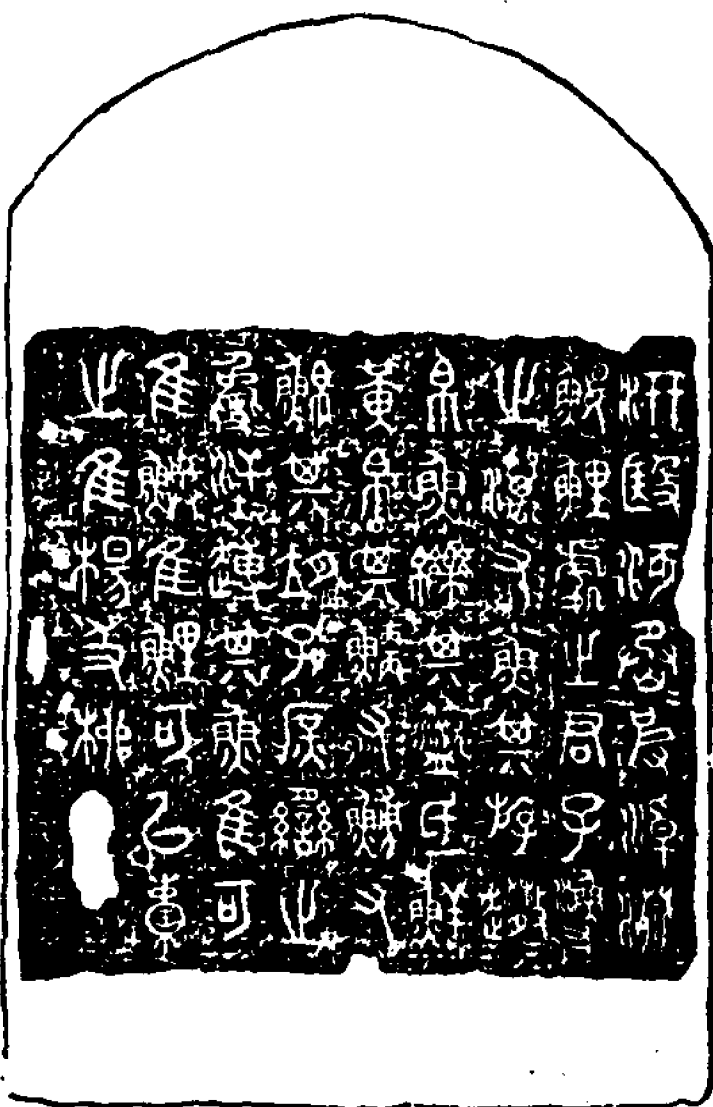 汧殹沔丞皮淖淵
鰋鯉處之君子漁
之澫又小魚其斿趣
帛魚皪其盜氐鮮
黃帛其鯾又鰟又
鮊其胡孔庶臠之
㲋汗趩其魚隹可
隹鱮隹鯉可以橐
之隹楊及柳